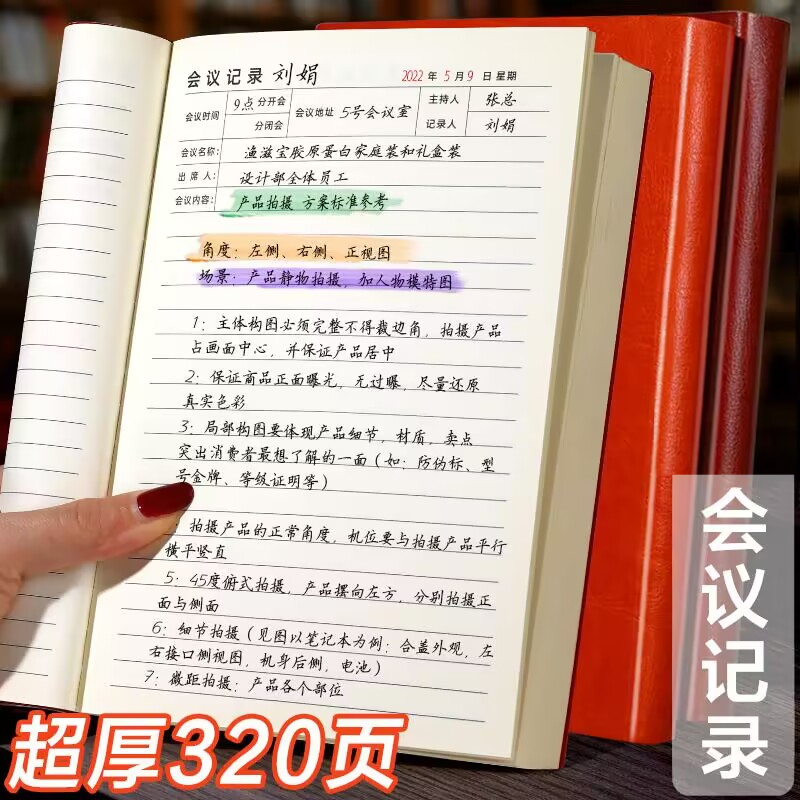 会议记录 刘娟
2022 年 5 月 9 日 星期
会议时间 9点 分开会 会议地址 5号会议室 主持人 张总
分闭会 记录人 刘娟
会议名称: 渔滋宝胶原蛋白家庭装和礼盒装
出席人: 设计部全体员工
会议内容: 产品拍摄 方案标准参考
角度: 左侧、右侧、正视图
场景: 产品静物拍摄, 加人物模特图
1: 主体构图必须完整不得裁边角, 拍摄产品
占画面中心, 并保证产品居中
2: 保证商品正面曝光, 无过曝, 尽量还原
真实色彩
3: 局部构图要体现产品细节, 材质, 卖点
突出消费者最想了解的一面 (如: 防伪标、型
号金牌、等级证明等)
: 拍摄产品的正常角度, 机位要与拍摄产品平行
横平竖直
5: 45度俯式拍摄, 产品摆向左方, 分别拍摄正
面与侧面
6: 细节拍摄 (见图以笔记本为例: 合盖外观, 左
右接口侧视图, 机身后侧, 电池)
7: 微距拍摄: 产品各个部位
会议记录
超厚320页